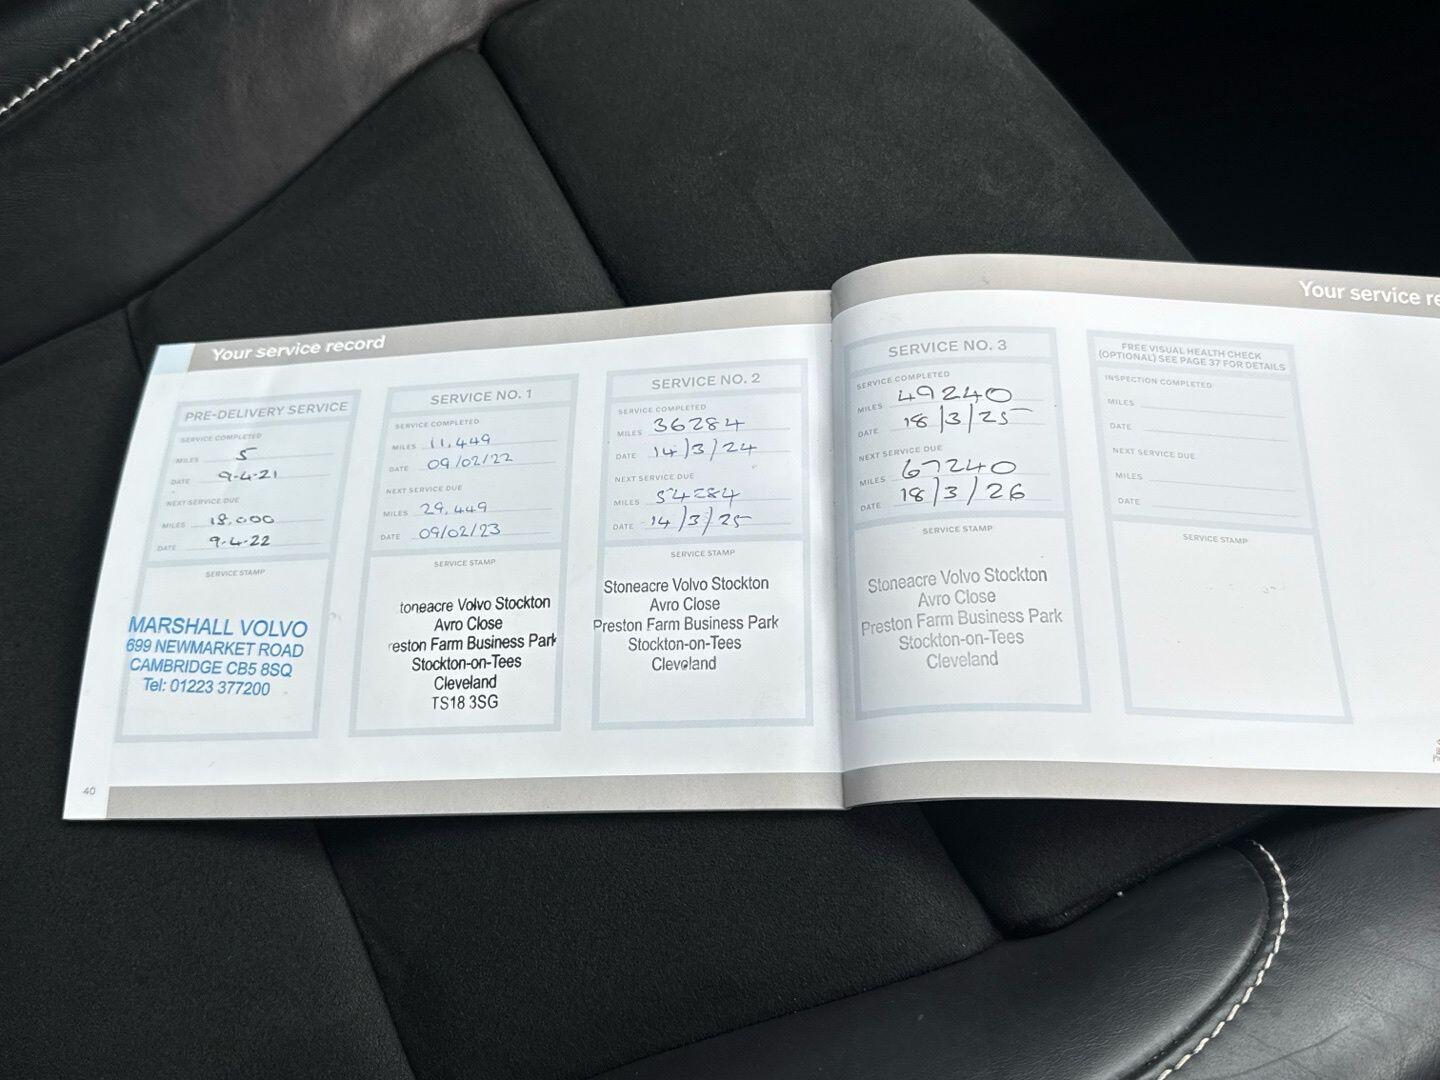 Your service record
PRE-DELIVERY SERVICE
SERVICE COMPLETED
MILES 5
DATE 9-4-21
NEXT SERVICE DUE
MILES 18,000
DATE 9-4-22
SERVICE STAMP
MARSHALL VOLVO
699 NEWMARKET ROAD
CAMBRIDGE CB5 8SQ
Tel: 01223 377200
40
SERVICE NO. 1
SERVICE COMPLETED
MILES 11,449
DATE 09/02/22
NEXT SERVICE DUE
MILES 29,449
DATE 09/02/23
SERVICE STAMP
toneacre Volvo Stockton
Avro Close
reston Farm Business Park
Stockton-on-Tees
Cleveland
TS18 3SG
SERVICE NO. 2
SERVICE COMPLETED
MILES 36284
DATE 14/3/24
NEXT SERVICE DUE
MILES 54284
DATE 14/3/25
SERVICE STAMP
Stoneacre Volvo Stockton
Avro Close
Preston Farm Business Park
Stockton-on-Tees
Cleveland
Your service re
SERVICE NO. 3
SERVICE COMPLETED
MILES 49240
DATE 18/3/25
NEXT SERVICE DUE
MILES 67240
DATE 18/3/26
SERVICE STAMP
Stoneacre Volvo Stockton
Avro Close
Preston Farm Business Park
Stockton-on-Tees
Cleveland
FREE VISUAL HEALTH CHECK
(OPTIONAL) SEE PAGE 37 FOR DETAILS
INSPECTION COMPLETED
MILES
DATE
NEXT SERVICE DUE
MILES
DATE
SERVICE STAMP